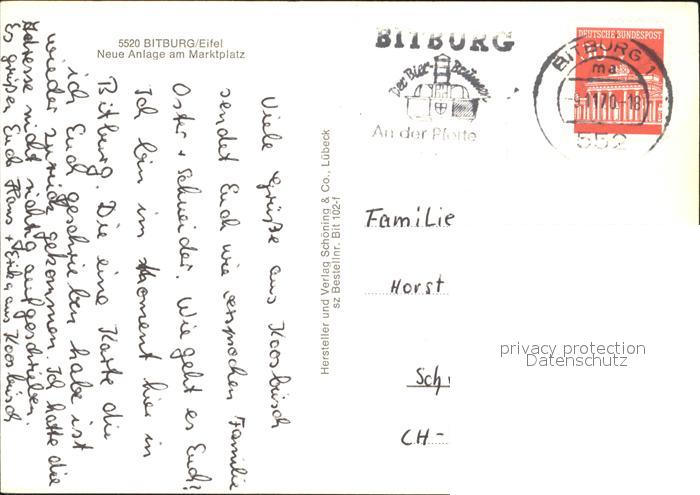 5520 BITBURG/Eifel
Neue Anlage am Marktplatz
BITBURG
Der Bier-Brunnen
An der Pforte
DEUTSCHE BUNDESPOST
BITBURG 1
ma
70-18
552
Viele Grüße aus Koosbüsch
sendet Euch wie versprochen Familie
Oster + Schneider. Wie geht es Euch?
Ich bin im Moment hier in
Bitburg. Die eine Karte die
ich Euch geschrieben habe ist
wieder zurück gekommen. Ich hatte die
Adresse nicht richtig aufgeschrieben.
Es grüßen Euch Hans + Erika aus Koosbüsch
Hersteller und Verlag Schöning & Co., Lübeck
sz Bestellnr. Bit 102-f
Familie
Horst
Sch
CH-
privacy protection
Datenschutz